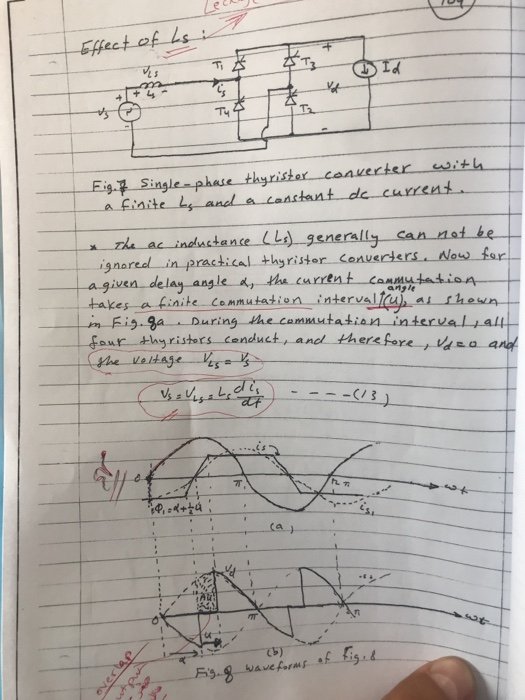 Effect of Ls :
VLs
+ Ls -
is
T1
T3
T4
T2
Vs
+
-
Vd
Id
Fig.7 Single-phase thyristor converter with
a finite Ls and a constant dc current.
* The ac inductance (Ls) generally can not be
ignored in practical thyristor converters. Now for
a given delay angle α, the current commutation
angle
takes a finite commutation interval (u), as shown
in Fig. 8a. During the commutation interval, all
four thyristors conduct, and therefore, Vd=0 and
the voltage VLs = Vs
Vs = VLs = Ls dis/dt - - - - -(13)
is
0
π
2π
ωt
Φ1=α+½u
is1
(a)
Vd
0
π
ωt
α
u
(b)
overlap
Fig.8 waveforms of Fig.